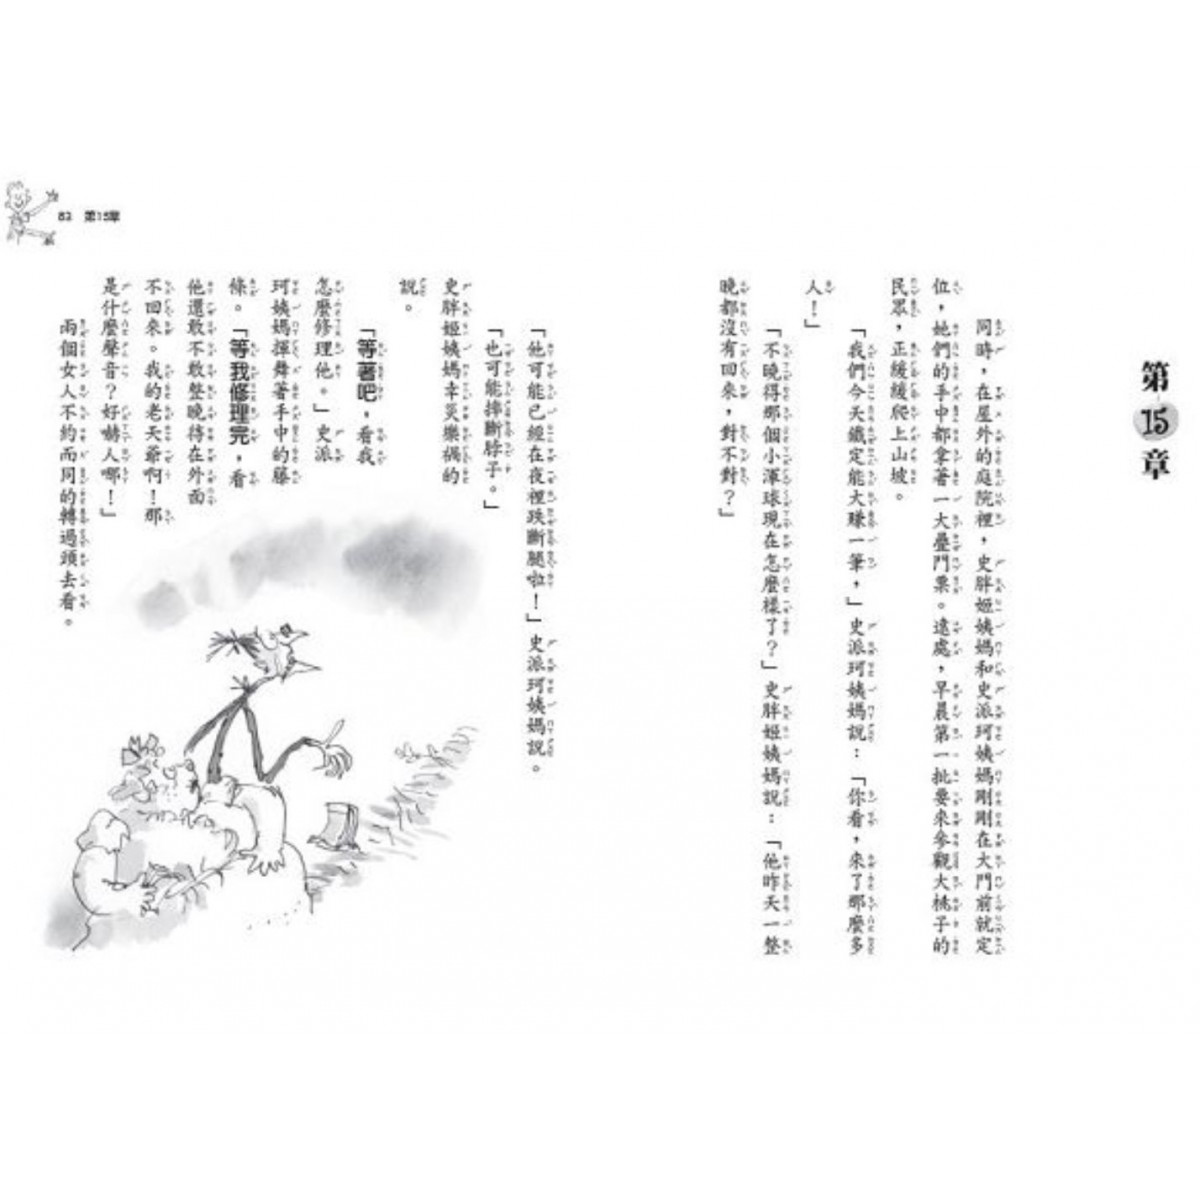 第15章
同時，在屋外的庭院裡，史胖姬姨媽和史派珂姨媽剛剛在大門前就定
位，她們的手中都拿著一大疊門票。遠處，早晨第一批要來參觀大桃子的
民眾，正緩緩爬上山坡。
「我們今天鐵定能大賺一筆，」史派珂姨媽說：「你看，來了那麼多
人！」
「不曉得那個小渾球現在怎麼樣了？」史胖姬姨媽說：「他昨天一整
晚都沒有回來，對不對？」
「他可能已經在夜裡跌斷腿啦！」史派珂姨媽說。
「也可能摔斷脖子。」
史胖姬姨媽幸災樂禍的
說。
「等著吧，看我
怎麼修理他。」史派
珂姨媽揮舞著手中的藤
條。「等我修理完，看
他還敢不敢整晚待在外面
不回來。我的老天爺啊！那
是什麼聲音？好嚇人哪！」
兩個女人不約而同的轉過頭去看。
83 第15章